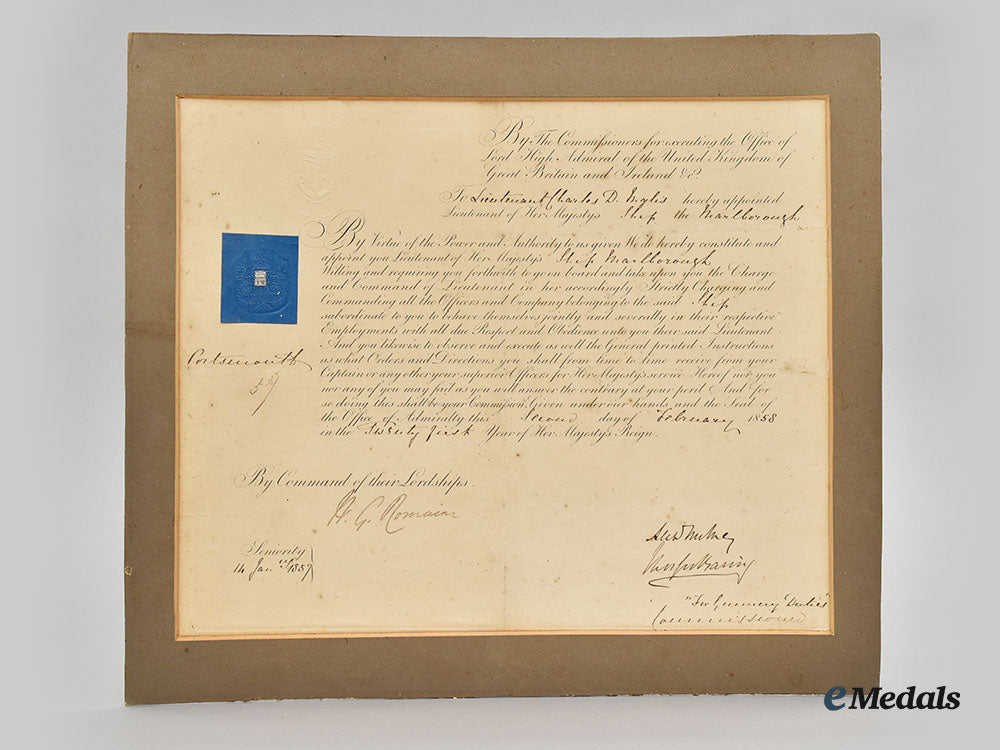 By The Commissioners for executing the Office of
Lord High Admiral of the United Kingdom of
Great Britain and Ireland &c.
To Lieutenant Charles D. Inglis hereby appointed
Lieutenant of Her Majesty's Ship the Marlborough
By Virtue of the Power and Authority to us given We do hereby constitute and
appoint you Lieutenant of Her Majesty's Ship Marlborough
Willing and requiring you forthwith to go on board and take upon you the Charge
and Command of Lieutenant in her accordingly Strictly Charging and
Commanding all the Officers and Company belonging to the said Ship
subordinate to you to behave themselves jointly and severally in their respective
Employments with all due Respect and Obedience unto you their said Lieutenant
And you likewise to observe and execute as well the General printed Instructions
as what Orders and Directions you shall from time to time receive from your
Captain or any other your superior Officers for Her Majesty's service Hereof nor you
nor any of you may fail as you will answer the contrary at your peril And for
so doing this shall be your Commission Given under our hands and the Seal of
the Office of Admiralty this Second day of February 1858
in the Twenty first Year of Her Majesty's Reign.
Portsmouth
By Command of their Lordships.
W. G. Romaine
Seniority
14 Jany 1857
"For Gunnery Duties"
Commissioned
eMedals